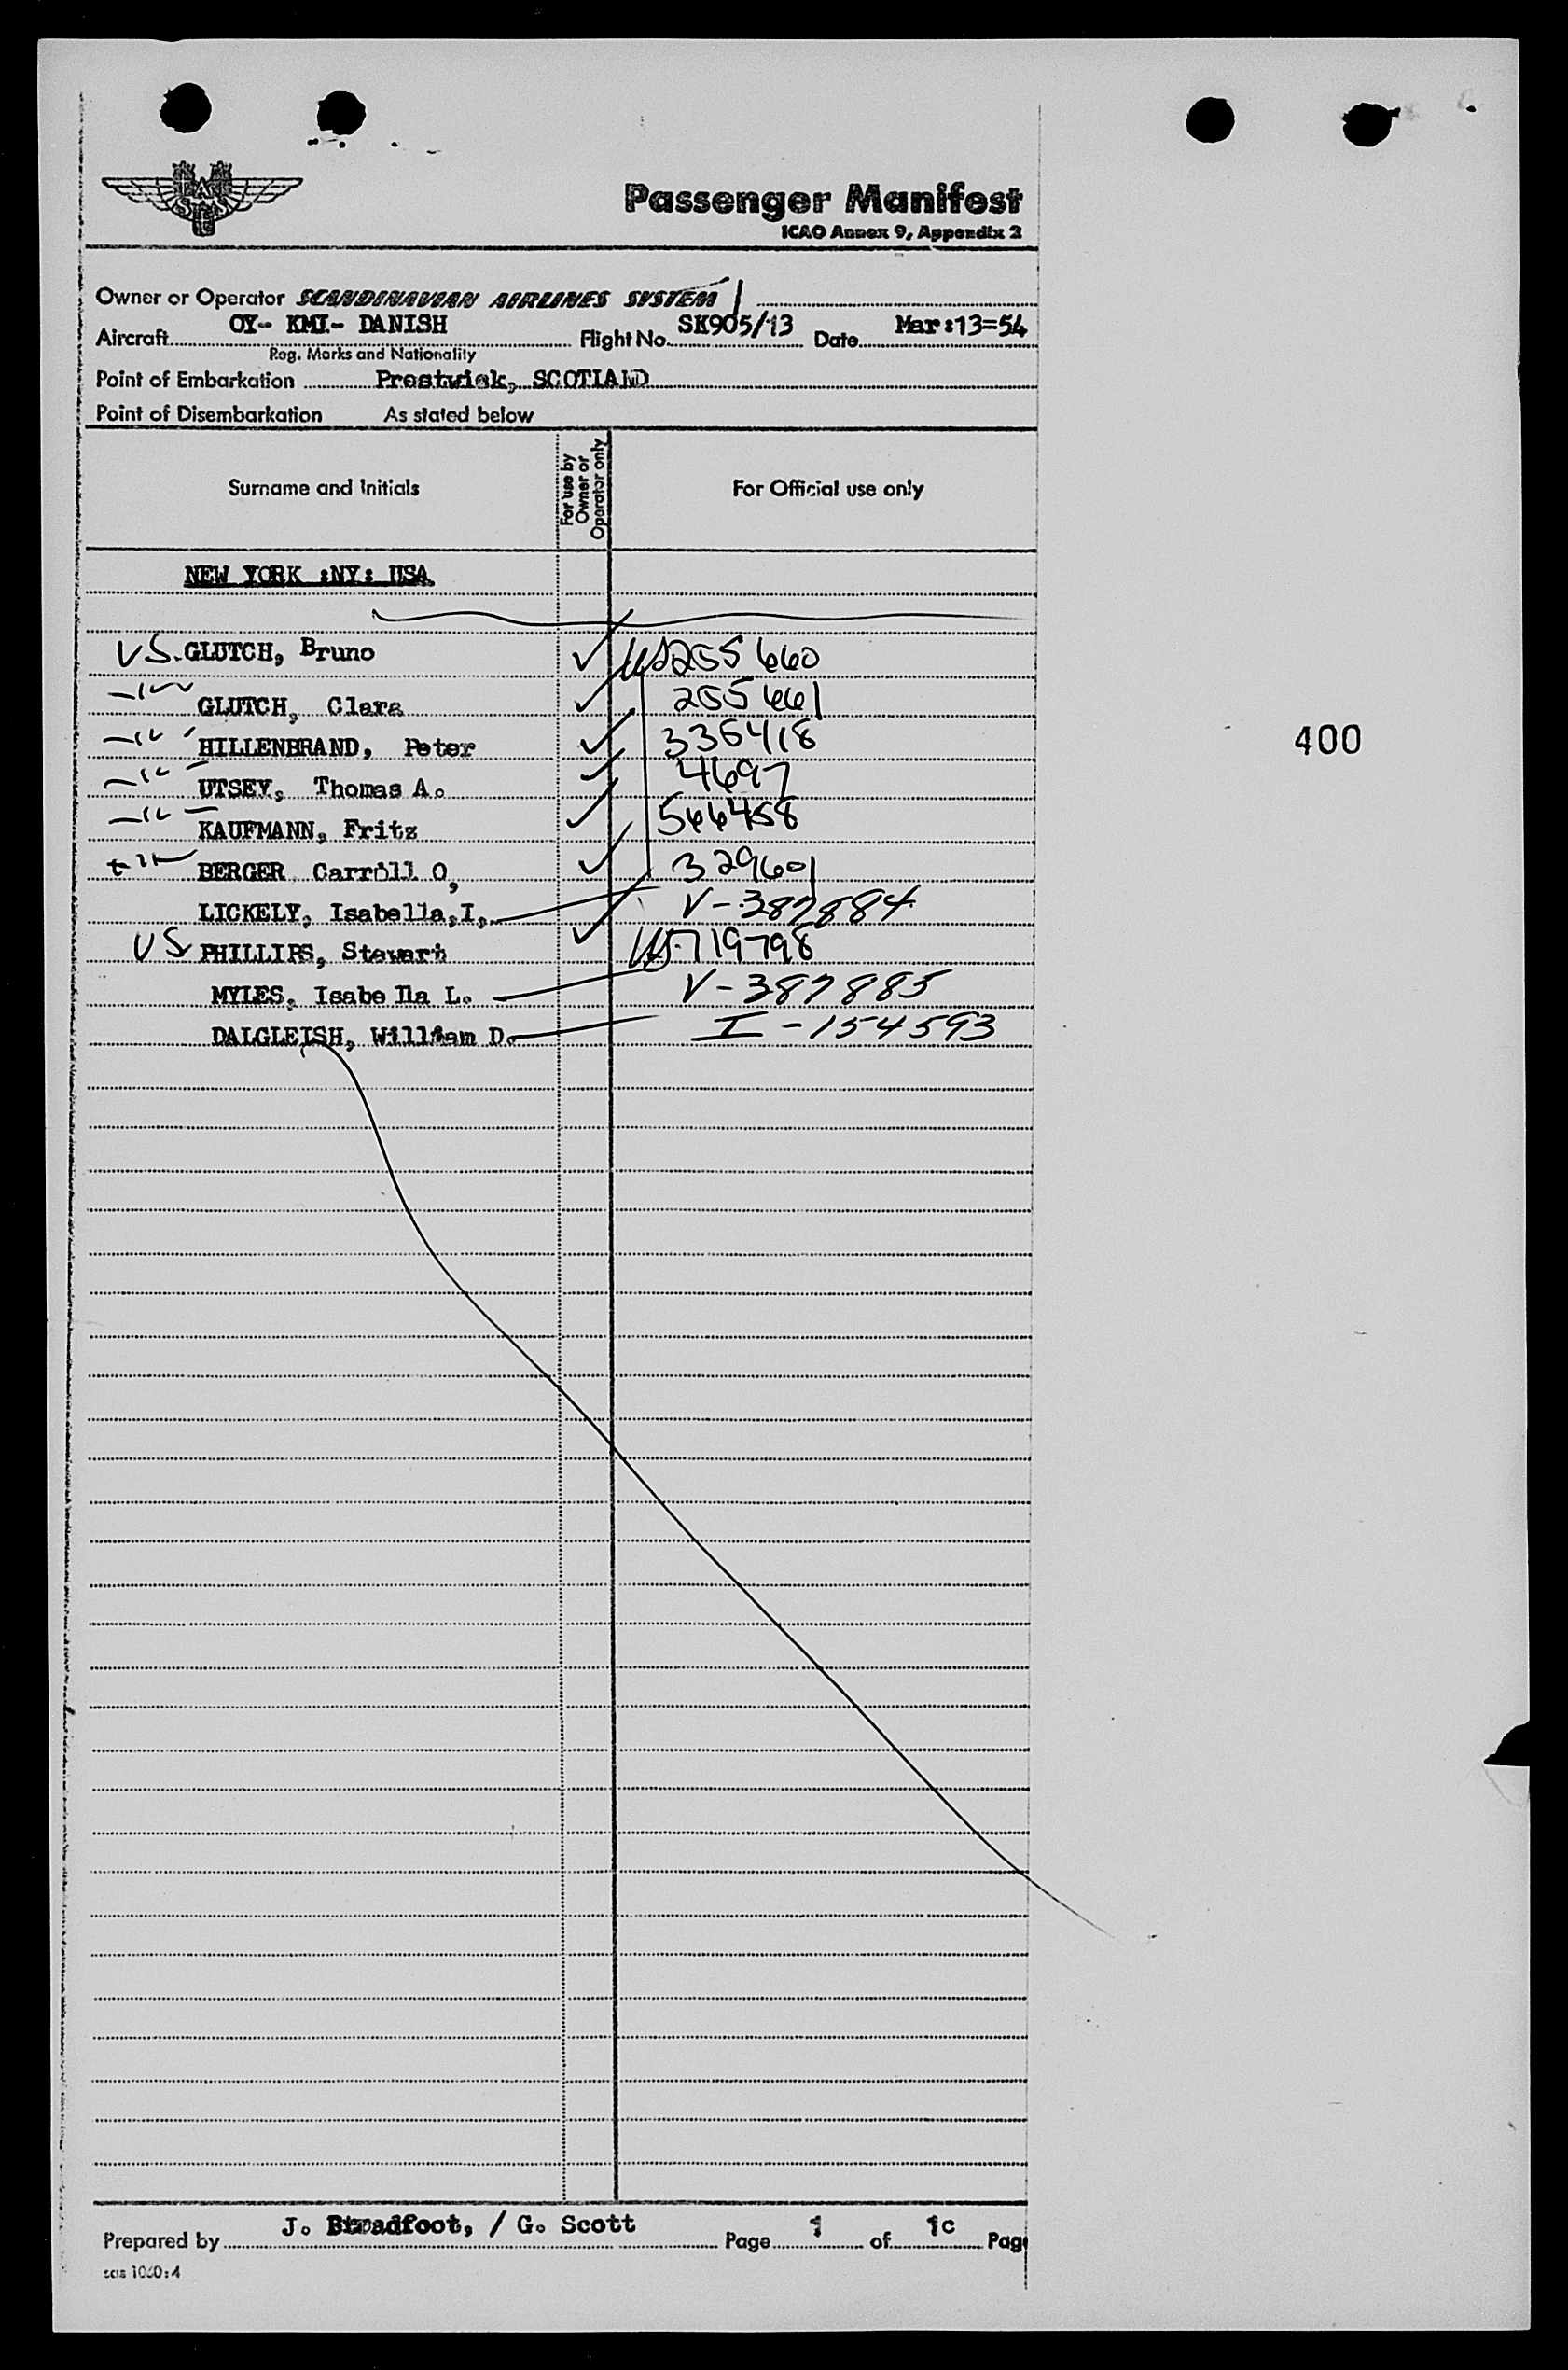 Passenger Manifest
ICAO Annex 9, Appendix 2
Owner or Operator SCANDINAVIAN AIRLINES SYSTEM
Aircraft OY- KMI- DANISH Flight No. SK905/13 Date Mar:13=54
Reg. Marks and Nationality
Point of Embarkation Prestwick, SCOTLAND
Point of Disembarkation As stated below
Surname and Initials For use by Owner or Operator only For Official use only
NEW YORK :NY: USA
US. GLUTCH, Bruno US 255660
GLUTCH, Clara 255661
HILLENBRAND, Peter 336418
UTSEY, Thomas A. 4697
KAUFMANN, Fritz 566458
BERGER Carroll O, 329601
LICKELY, Isabella, I, V-387884
US PHILLIPS, Stewart US 719798
MYLES, Isabella L. V-387885
DALGLEISH, William D. I-154593
400
Prepared by J. Broadfoot, / G. Scott Page 1 of 1c Page
sas 1060:4